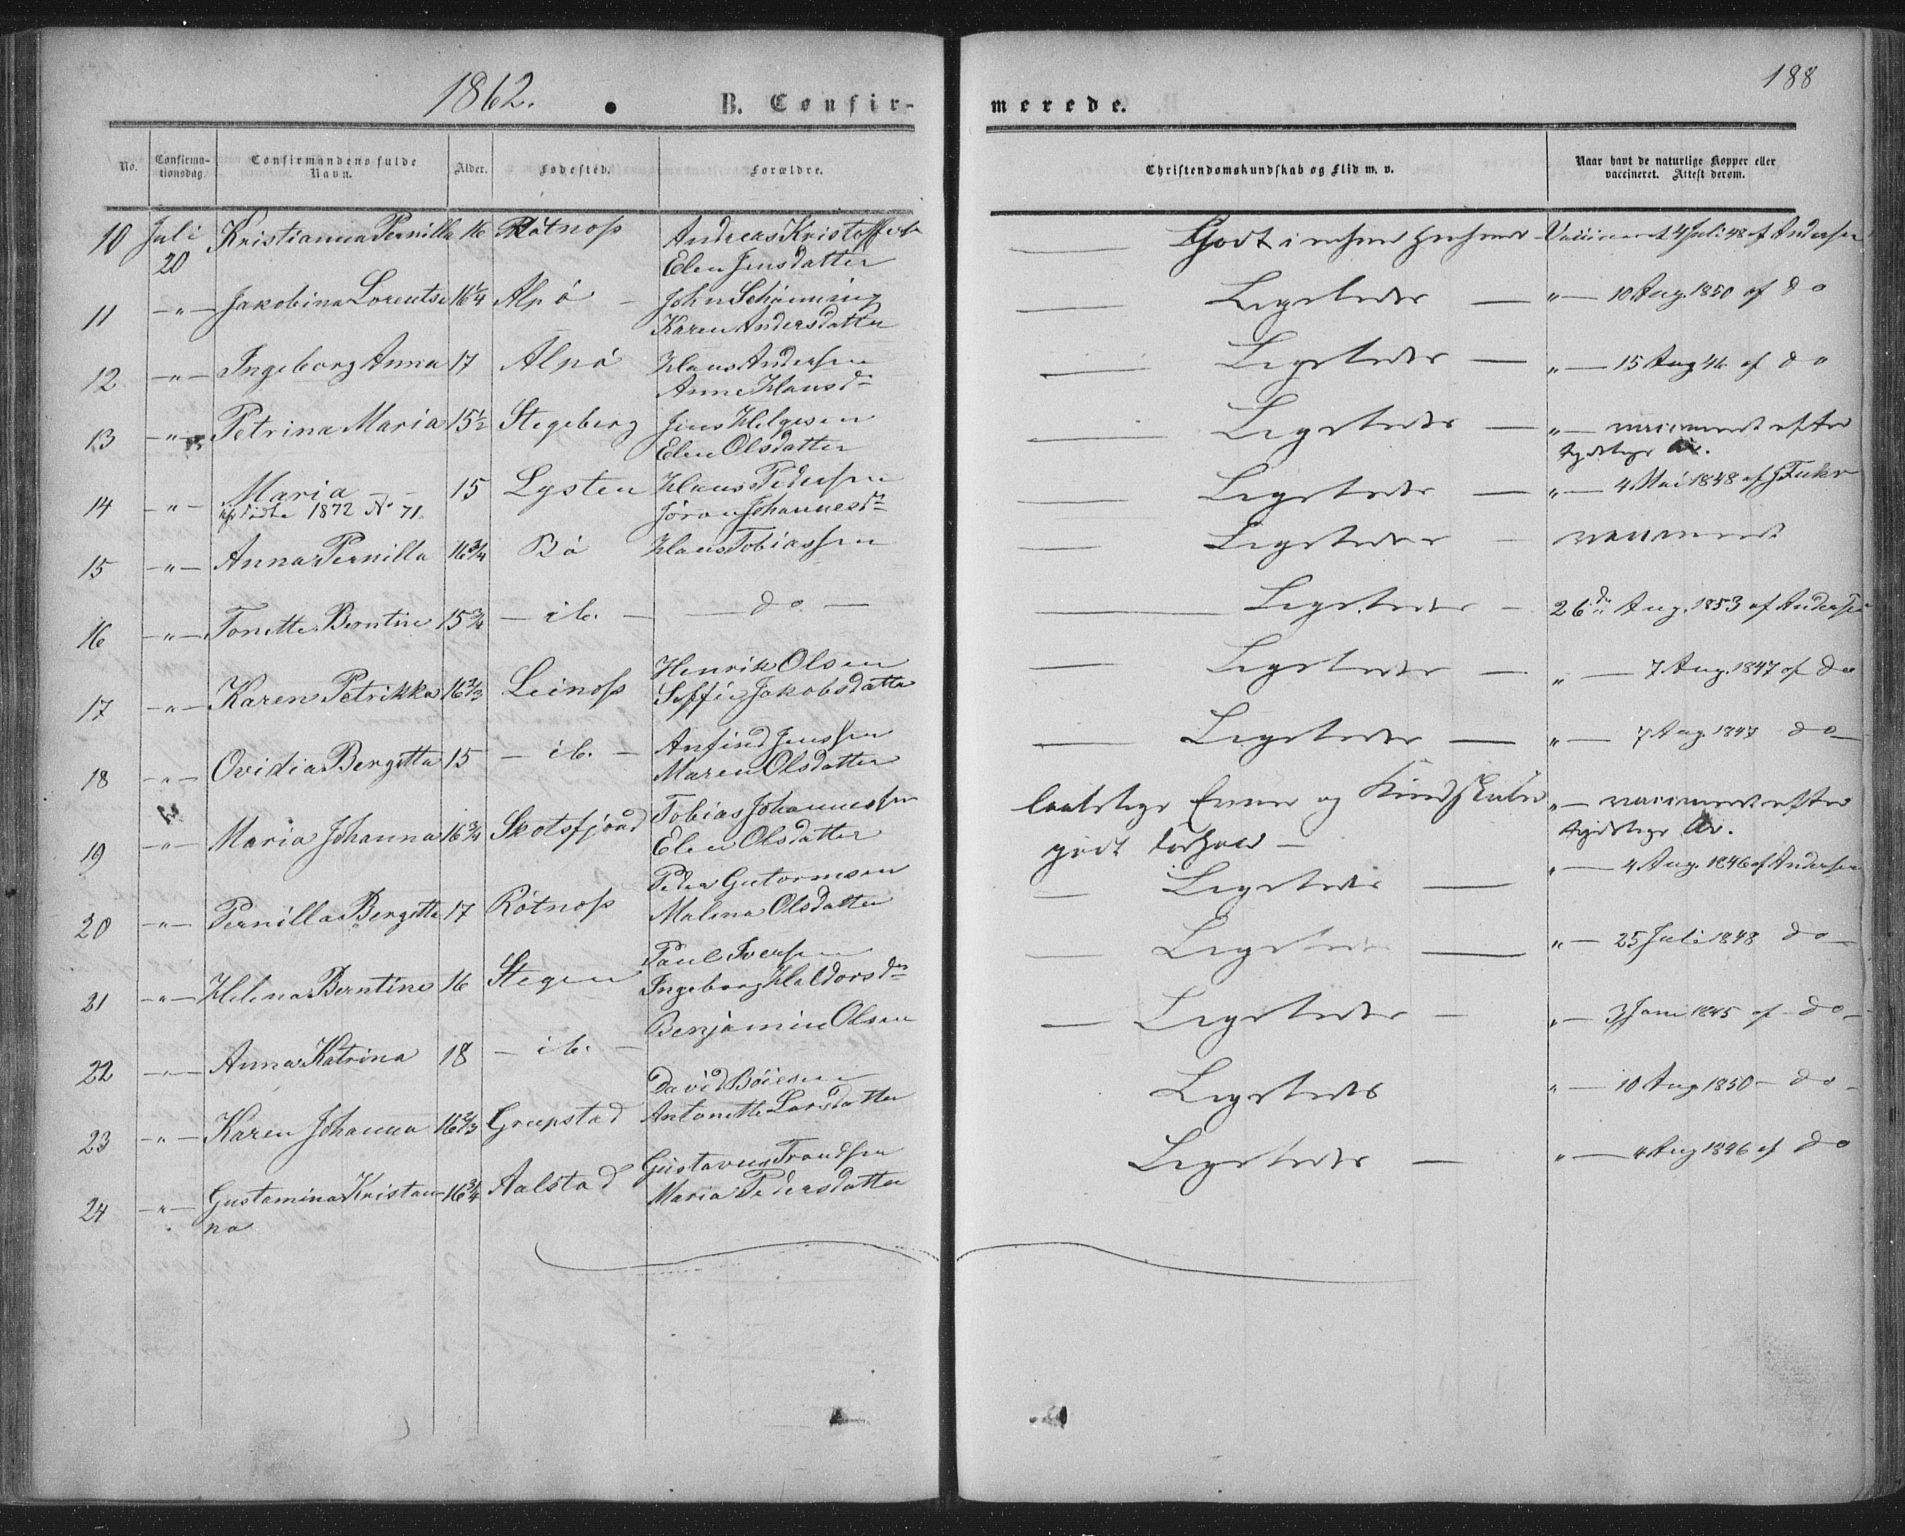 1862.
188
B. Confir-
merede.
No.
Confirma-
tionsdag.
Confirmandens fulde
Navn.
Alder.
Fødested.
Forældre.
Christendomskundskab og Flid m. v.
Naar havt de naturlige Kopper eller
vaccineret. Attest derom.
10 Juli Kristianna Pernilla 16 Røtnøss Andreas Kristoffers
20 Elen Jensdatter
Godt i
Vaccineret 4 Juli 48 af Andersen
11 —"— Jakobina Lorentse 16 1/4 Alpø John Schønning
Karen Andersdatter
— Ligeledes — "— 10 Aug. 1850 af do
12 —"— Ingeborg Anna 17 Alpø Klaus Andersen
Anne Klausdr
— Ligeledes — "— 15 Aug 46 af do
13 —"— Petrina Maria 15 1/2 Stegeberg Jens Helgesen
Elen Olsdatter
— Ligeledes — "— vaccineret efter
tydelige Ar.
14 —"— Maria 15 Lysten Klaus Pedersen
1872 No 71. Johannesdr
— Ligeledes — "— 4 Mai 1848 af
15 —"— Anna Pernilla 16 3/4 Bø Klaus Tobiassen
— Ligeledes — vaccineret
16 —"— Tonette Berntine 15 3/4 — ib. — — do —
— Ligeledes — 26de Aug. 1853 af Andersen
17 —"— Karen Petrikka 16 2/3 Leinøss Henrik Olsen
Seffia Jakobsdatter
— Ligeledes — "— 7 Aug. 1847 af do
18 —"— Ovidia Bergitta 15 — ib. — Anfind Jenssen
Maren Olsdatter
— Ligeledes — "— 7 Aug 1847 do
19 —"— Maria Johanna 16 3/4 Skotsfjord Tobias Johannessen
Elen Olsdatter
Evner og Kundskaber
godt Forhold —
"— vaccineret efter
tydelige Ar.
20 —"— Pernilla Bergitte 17 Røtnøss Peder Gutormsen
Malena Olsdatter
— Ligeledes — "— 4 Aug. 1846 af Andersen
21 —"— Helena Berntine 16 Stegen Paul Iversen
Ingeborg Haldorsdr
— Ligeledes — "— 25 Juli 1848 do
22 —"— Anna Katrina 18 — ib. — Benjamin Olsen
— Ligeledes — "— 3 Juni 1845 af do
23 —"— Karen Johanna 16 2/3 Grøpstad David Bøiesen
Antonette Larsdatter
Ligeledes "— 10 Aug 1850 — do
24 —"— Gustamina Kristan- 16 3/4 Aalstad Gustavus Trondsen
na Maria Pedersdatter
Ligeledes — "— 4 Aug 1846 af do